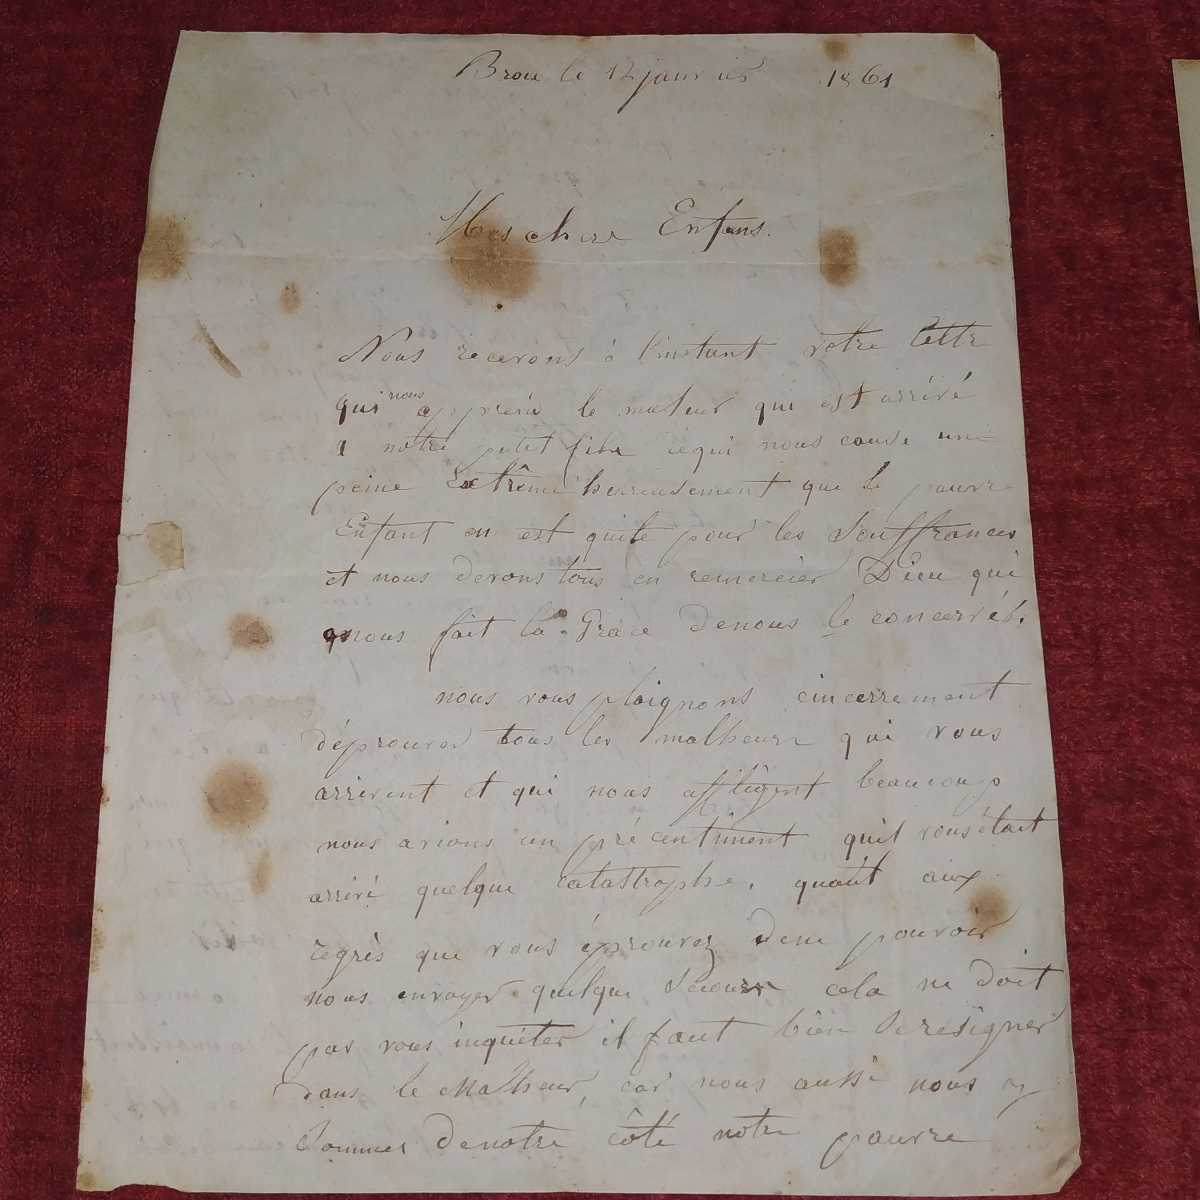 Brou le 12 janvier 1861
Mes chere Enfans.
Nous recevons à l'instant votre lettre
qui nous apprend le maleur qui est arrivé
a notre petit fils cequi nous cause une
peine Extrême heureusement que le pauvre
Enfant en est quite pour les Souffrances
et nous devons tous en remercier Dieu qui
nous fait la Grace denous le concervér.
nous vous plaignons cincerrement
déprouver tous les malheurs qui vous
arrivent et qui nous affligent beaucoup
nous avions un précentiment quil vous était
arrivé quelque Catastrophe. quant aux
regrès que vous éprouvez dene pouvoir
nous envoyer quelque Secours cela ne doit
pas vous inquiéter il faut bien Serésigner
dans le Malheur, car nous aussi nous y
Sommes denotre côté notre pauvre